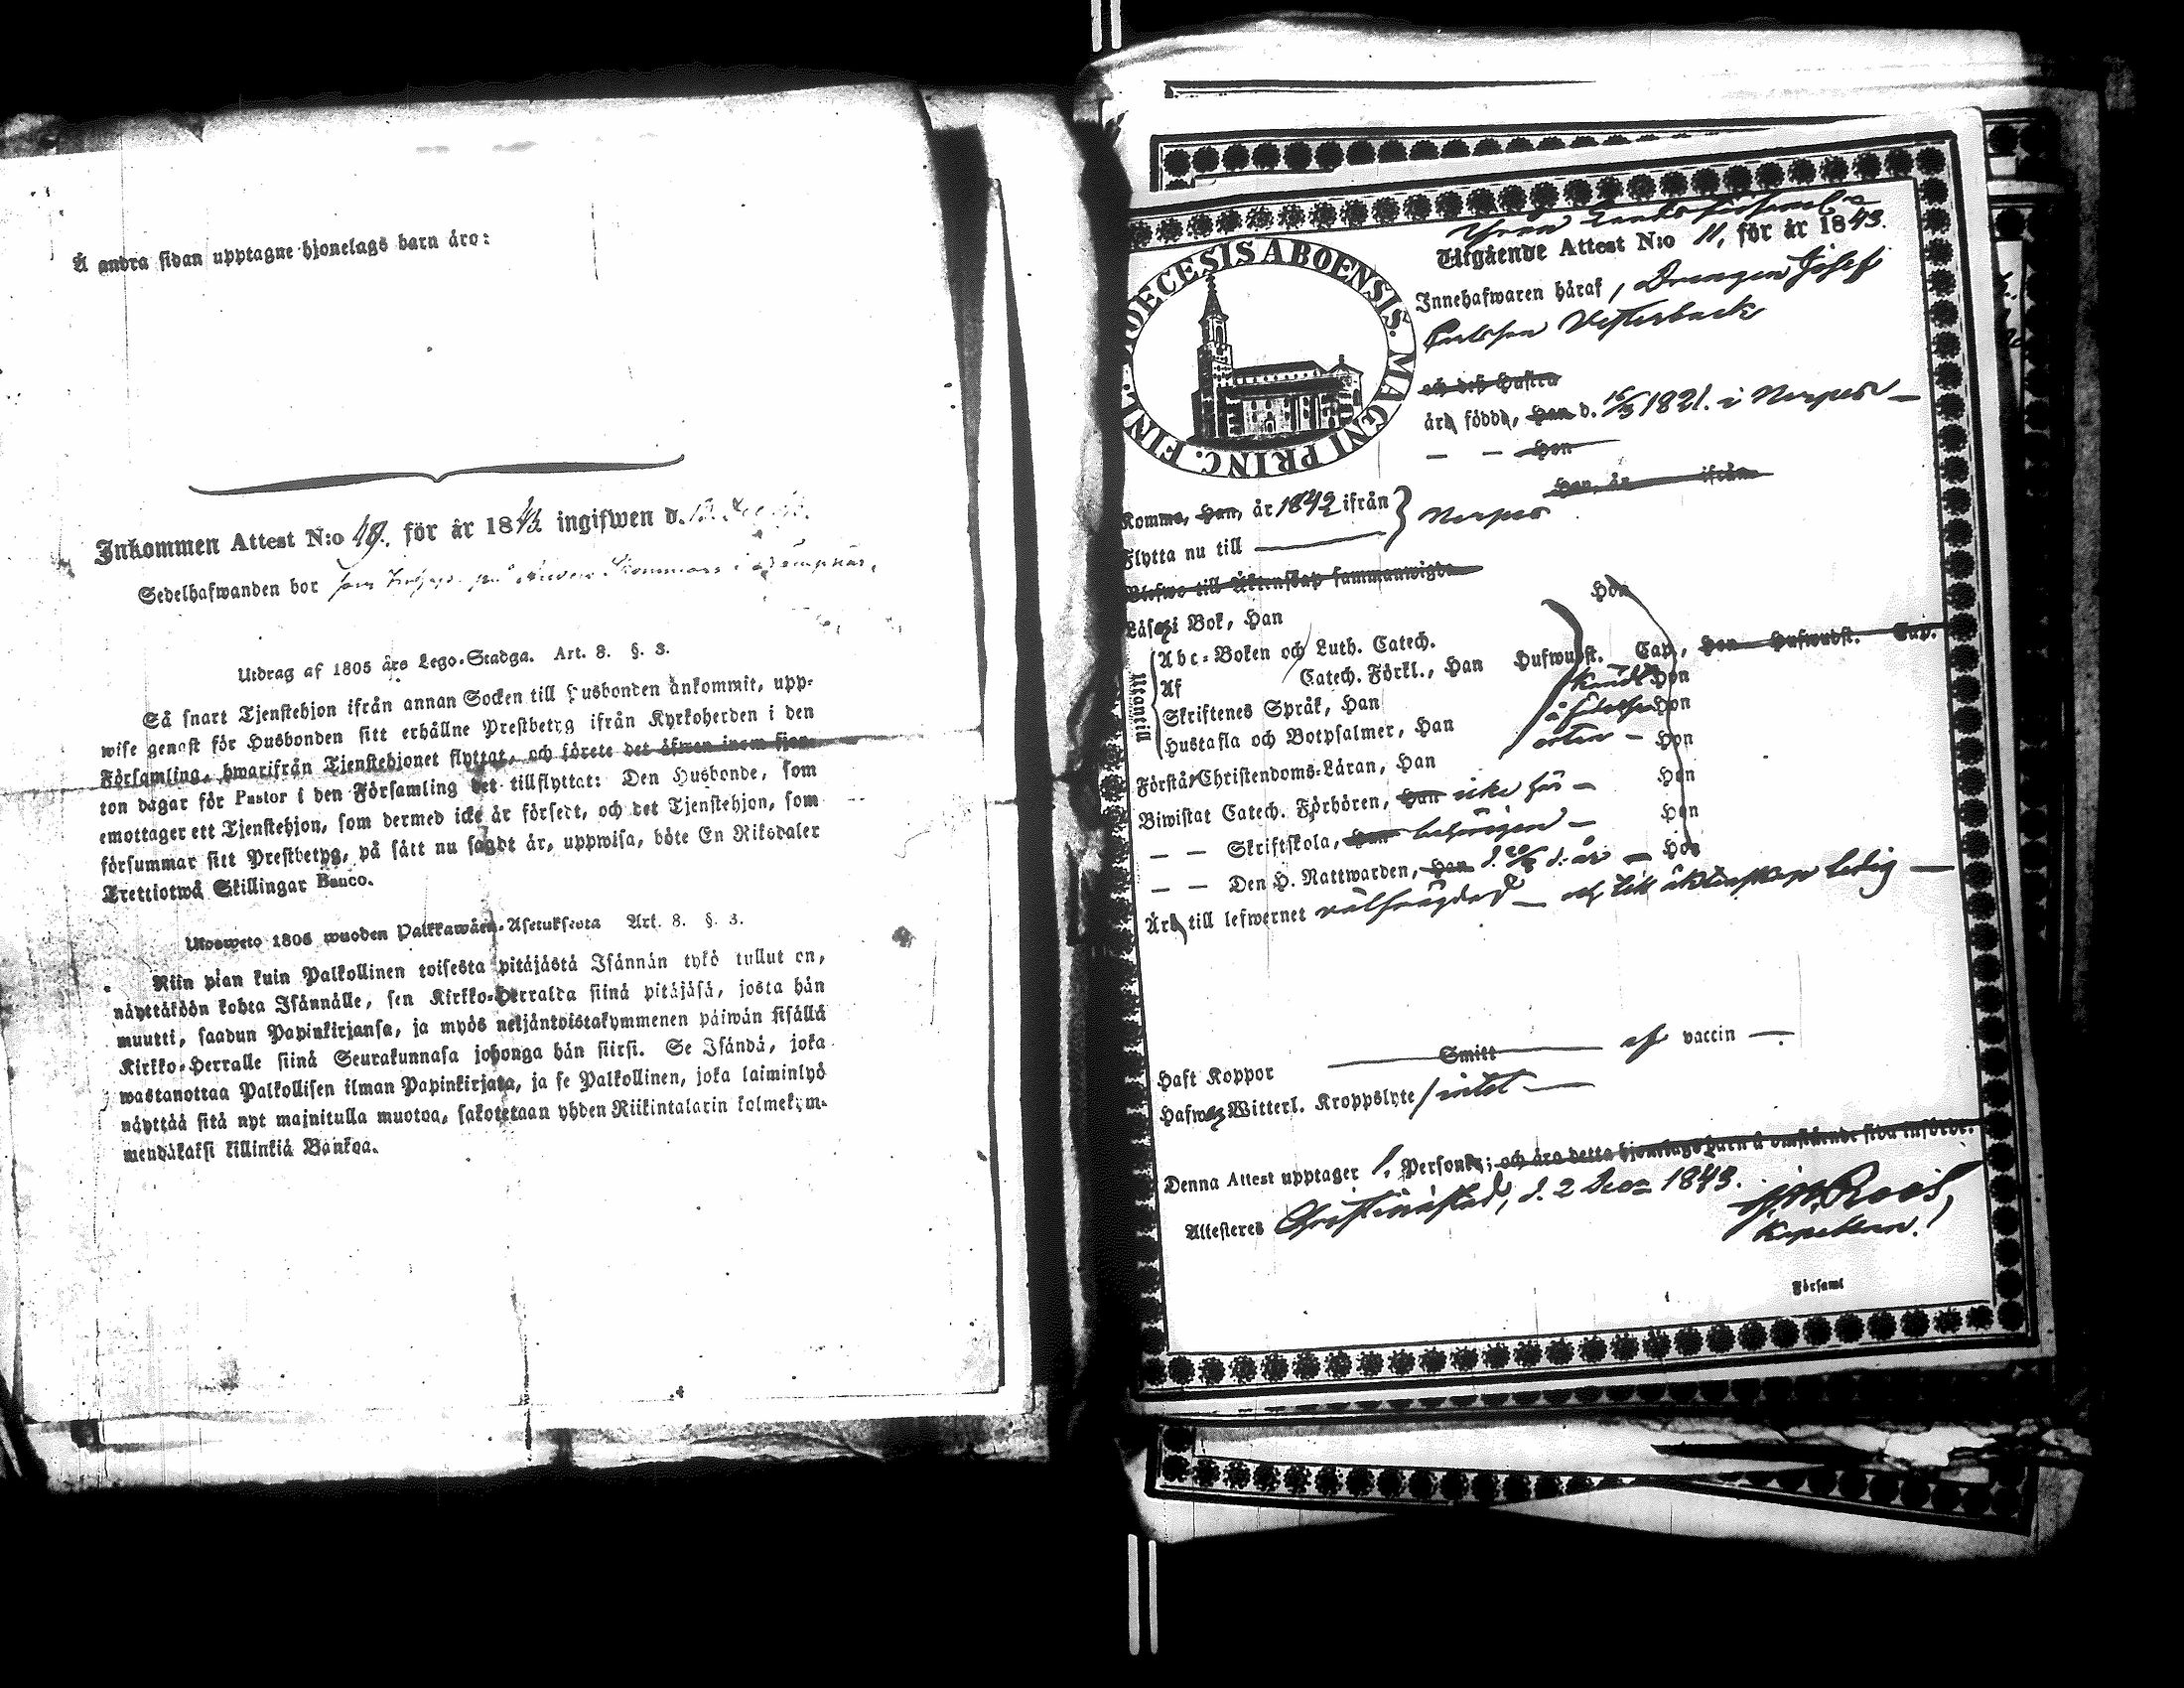 Å andra sidan upptagne hjonelags barn äro:
Inkommen Attest N:o 49. för år 1843 ingifwen d.
Sedelhafwanden bor som
Utdrag af 1805 års Lego-Stadga. Art. 8. §. 3.
Så snart Tjenstehjon ifrån annan Socken till Husbonden ankommit, upp-
wise genast för Husbonden sitt erhållne Prestbetyg ifrån Kyrkoherden i den
Församling, hwarifrån Tjenstehjonet flyttat, och förete det äfwen inom fjor-
ton dagar för Pastor i den Församling det tillflyttat: Den Husbonde, som
emottager ett Tjenstehjon, som dermed icke är försedt, och det Tjenstehjon, som
försummar sitt Prestbetyg, på sätt nu sagdt är, uppwisa, böte En Riksdaler
Trettiotwå Skillingar Banco.
Ulosweto 1805 wuoden Palkkawäen-Asetuksesta Art. 8. §. 3.
Niin pian kuin Palkollinen toisesta pitäjästä Isännän tykö tullut on,
näyttäköön kohta Isännälle, sen Kirkko-Herralda siinä pitäjäsä, josta hän
muutti, saadun Papinkirjansa, ja myös neljäntoistakymmenen päiwän sisällä
Kirkko-Herralle siinä Seurakunnasa johonga hän siirsi. Se Isändä, joka
wastanottaa Palkollisen ilman Papinkirjata, ja se Palkollinen, joka laiminlyö
näyttää sitä nyt mainitulla muotoa, sakotetaan yhden Riikintalarin kolmekym-
mendäkaksi killinkiä Bankoa.
DIOECESIS ABOENSIS. MAGNI PRINC. FINL.
Utgående Attest N:o 11, för år 1843.
Innehafwaren häraf, Drengen Josef
Carlsson Vesterback
och dess Hustru
äro födde, Han d. 16/3 1821. i Nerpes —
— — Hon
Han, år ifrån
Komme, Han, år 1842 ifrån } Nerpes
Flytta nu till
Blefwo till Äktenskap sammanwigde
Läsa i Bok, Han Hon
Utantill
Abc-Boken och Luth. Catech.
Af Catech. Förkl., Han Hufwudst. Cap., Hon Hufwudst. Cap.
Skriftenes Språk, Han Hon
Hustafla och Botpsalmer, Han Hon
känd å födelse orten —
Förstår Christendoms-Läran, Han Hon
Biwistat Catech. Förhören, Han icke här — Hon
— — Skriftskola, Han behörigen — Hon
— — Den H. Nattwarden, Han d. d. år — Hon
Äro till lefwernet välfrägdad — och till äktenskap ledig —
Haft Koppor Smitt af vaccin —
Hafwa Witterl. Kroppslyte intet —
Denna Attest upptager 1. Person; och äro detta hjonelags barn å omstående sida införde.
Attesteres Christinæstad, d. 2 Dec 1843. Roos,
Kapellan.
Församl